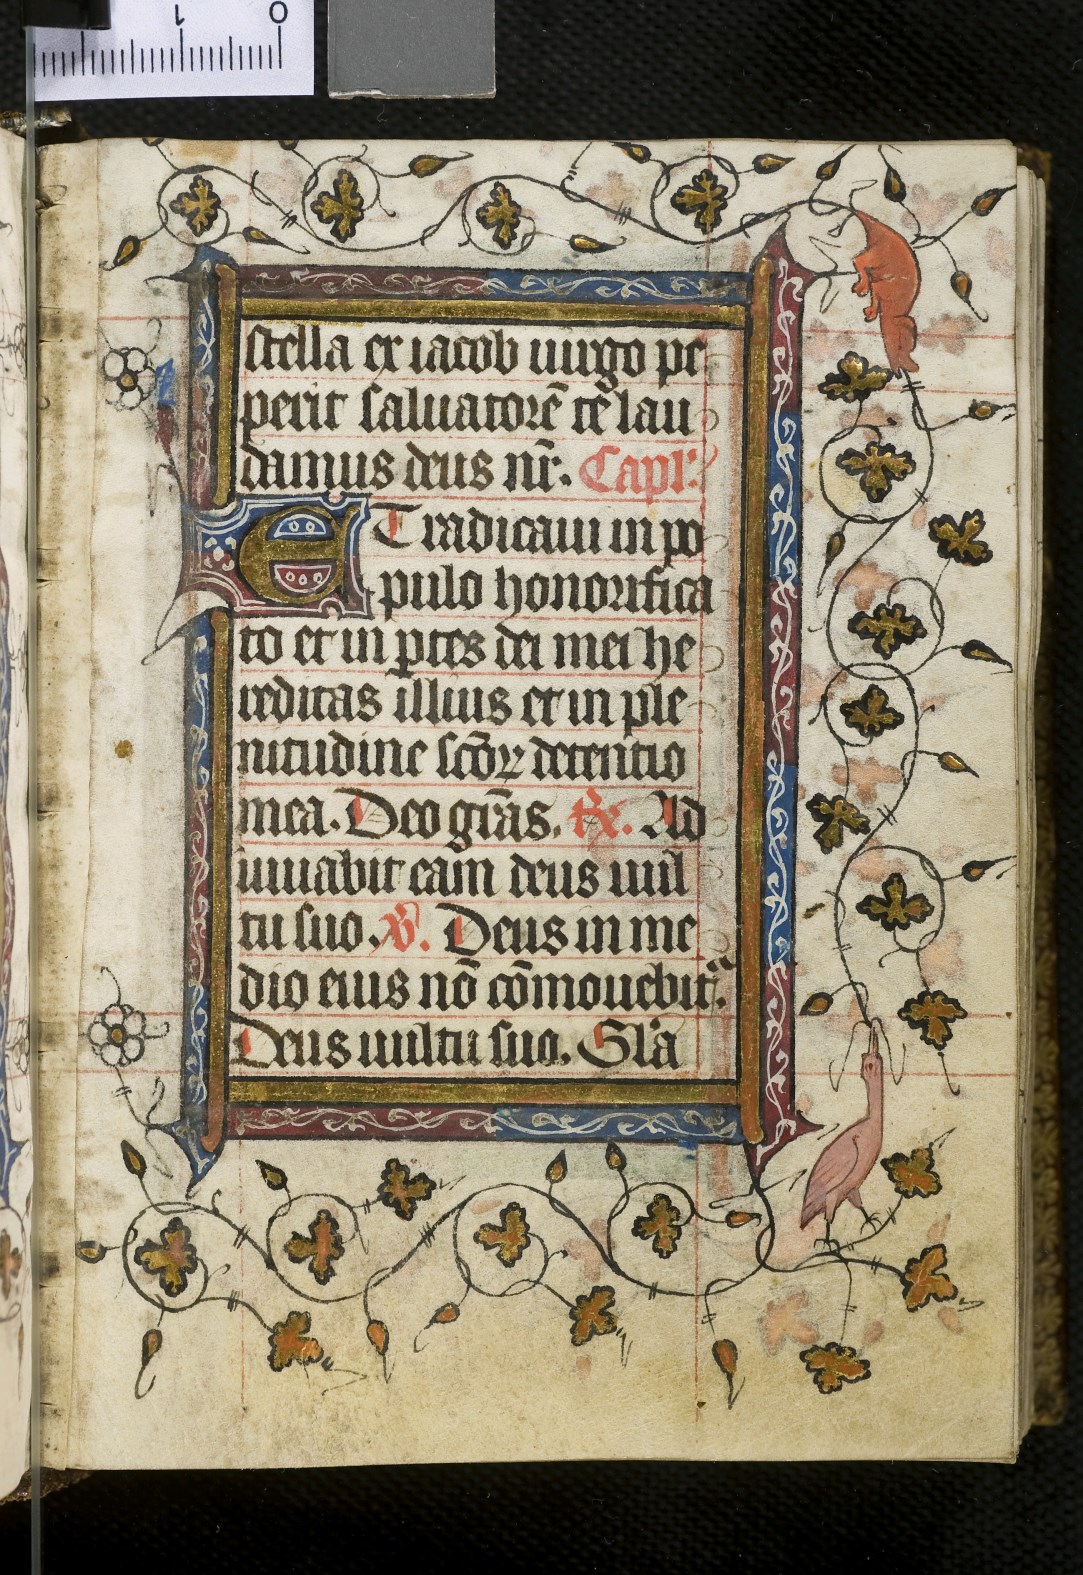 0 1
stella ex iacob uirgo pe
perit saluatorē te lau
damus deus nr̄. Capl'.
ET radicaui in po
pulo honorifica
to et in ꝑtes dei mei he
reditas illius et in ple
nitudine sc̄oꝝ detentio
mea. Deo gr̄as. ℟. Ad
iuuabit eam deus uul
tu suo. ℣. Deus in me
dio eius nō cōmouebit'.
Deus uultu suo. Gl'a